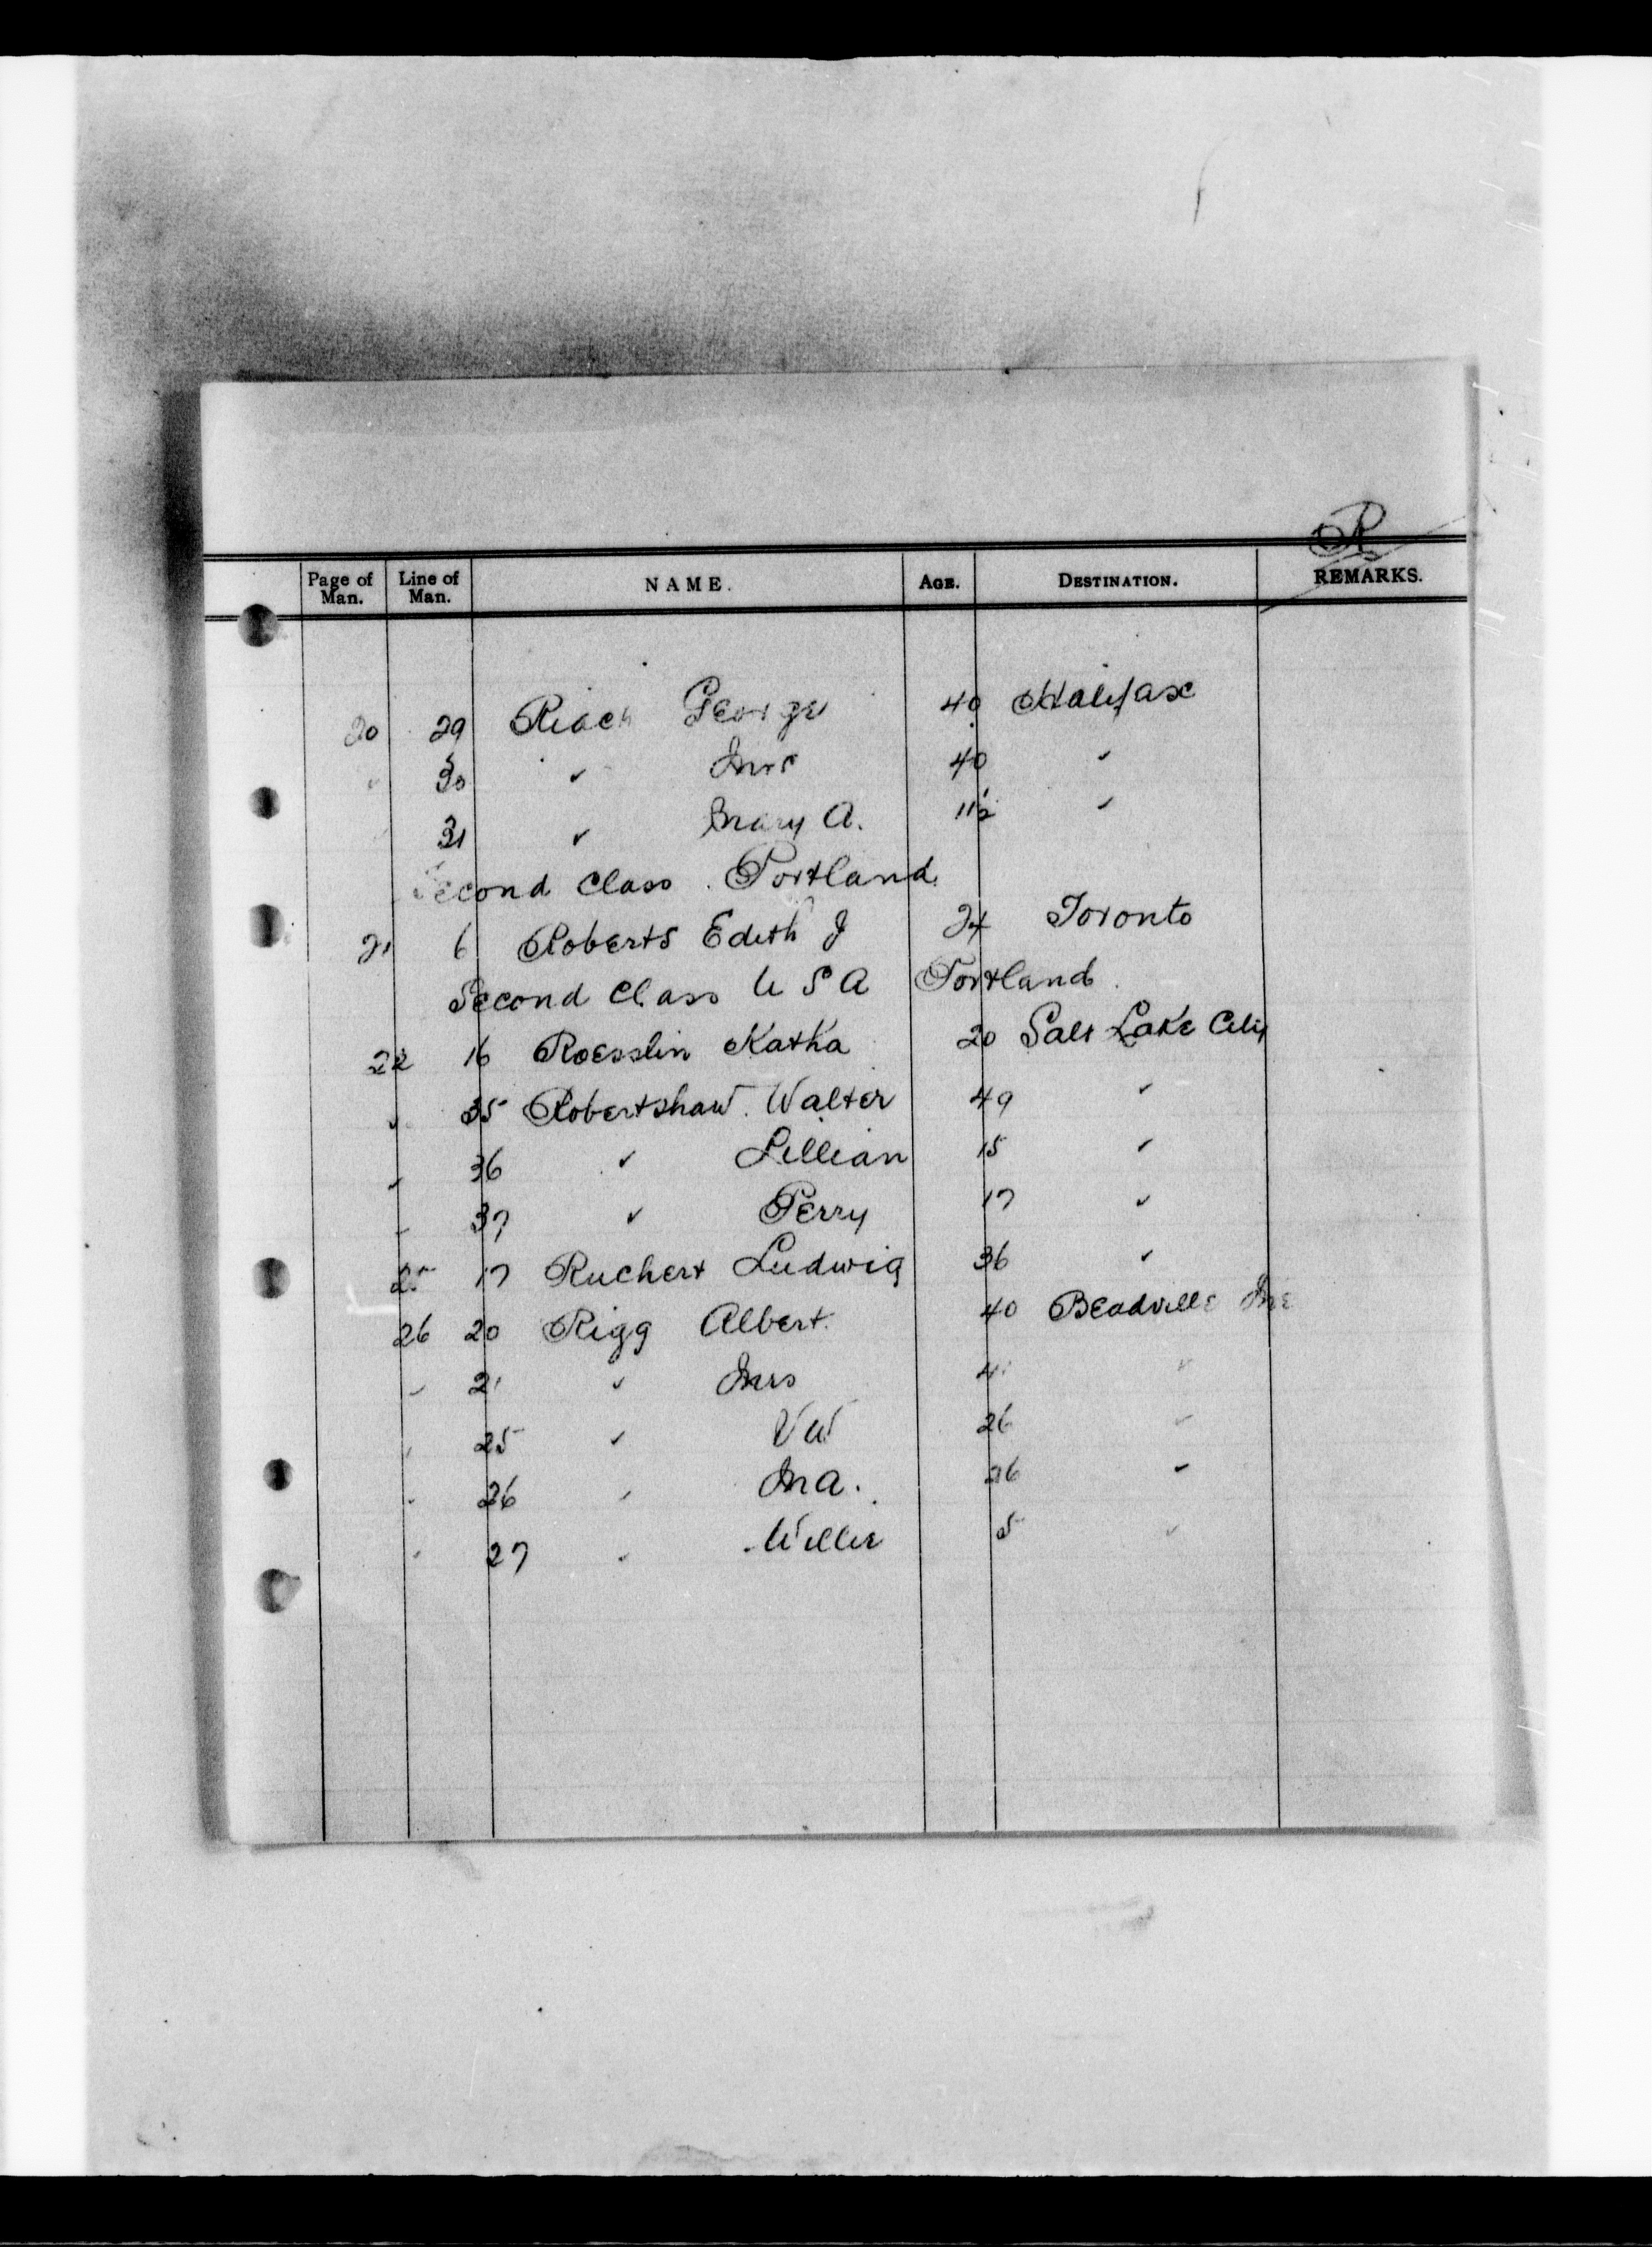 R
Page of Man. Line of Man. NAME. AGE. DESTINATION. REMARKS.
20 29 Riach George 40 Halifax
" 30 " Mrs 40 "
" 31 " Mary A. 11½ "
Second Class. Portland.
21 6 Roberts Edith J 24 Toronto
Second Class U S A Portland.
22 16 Roesslin Katha 20 Salt Lake City
" 35 Robertshaw. Walter 49 "
" 36 " Lillian 15 "
" 37 " Perry 17 "
25 17 Ruchert Ludwig 36 "
26 20 Rigg Albert. 40 Beadville Me
" 21 " Mrs "
" 25 " VW 26 "
" 26 " M A. 26 "
" 27 " Willie 5 "